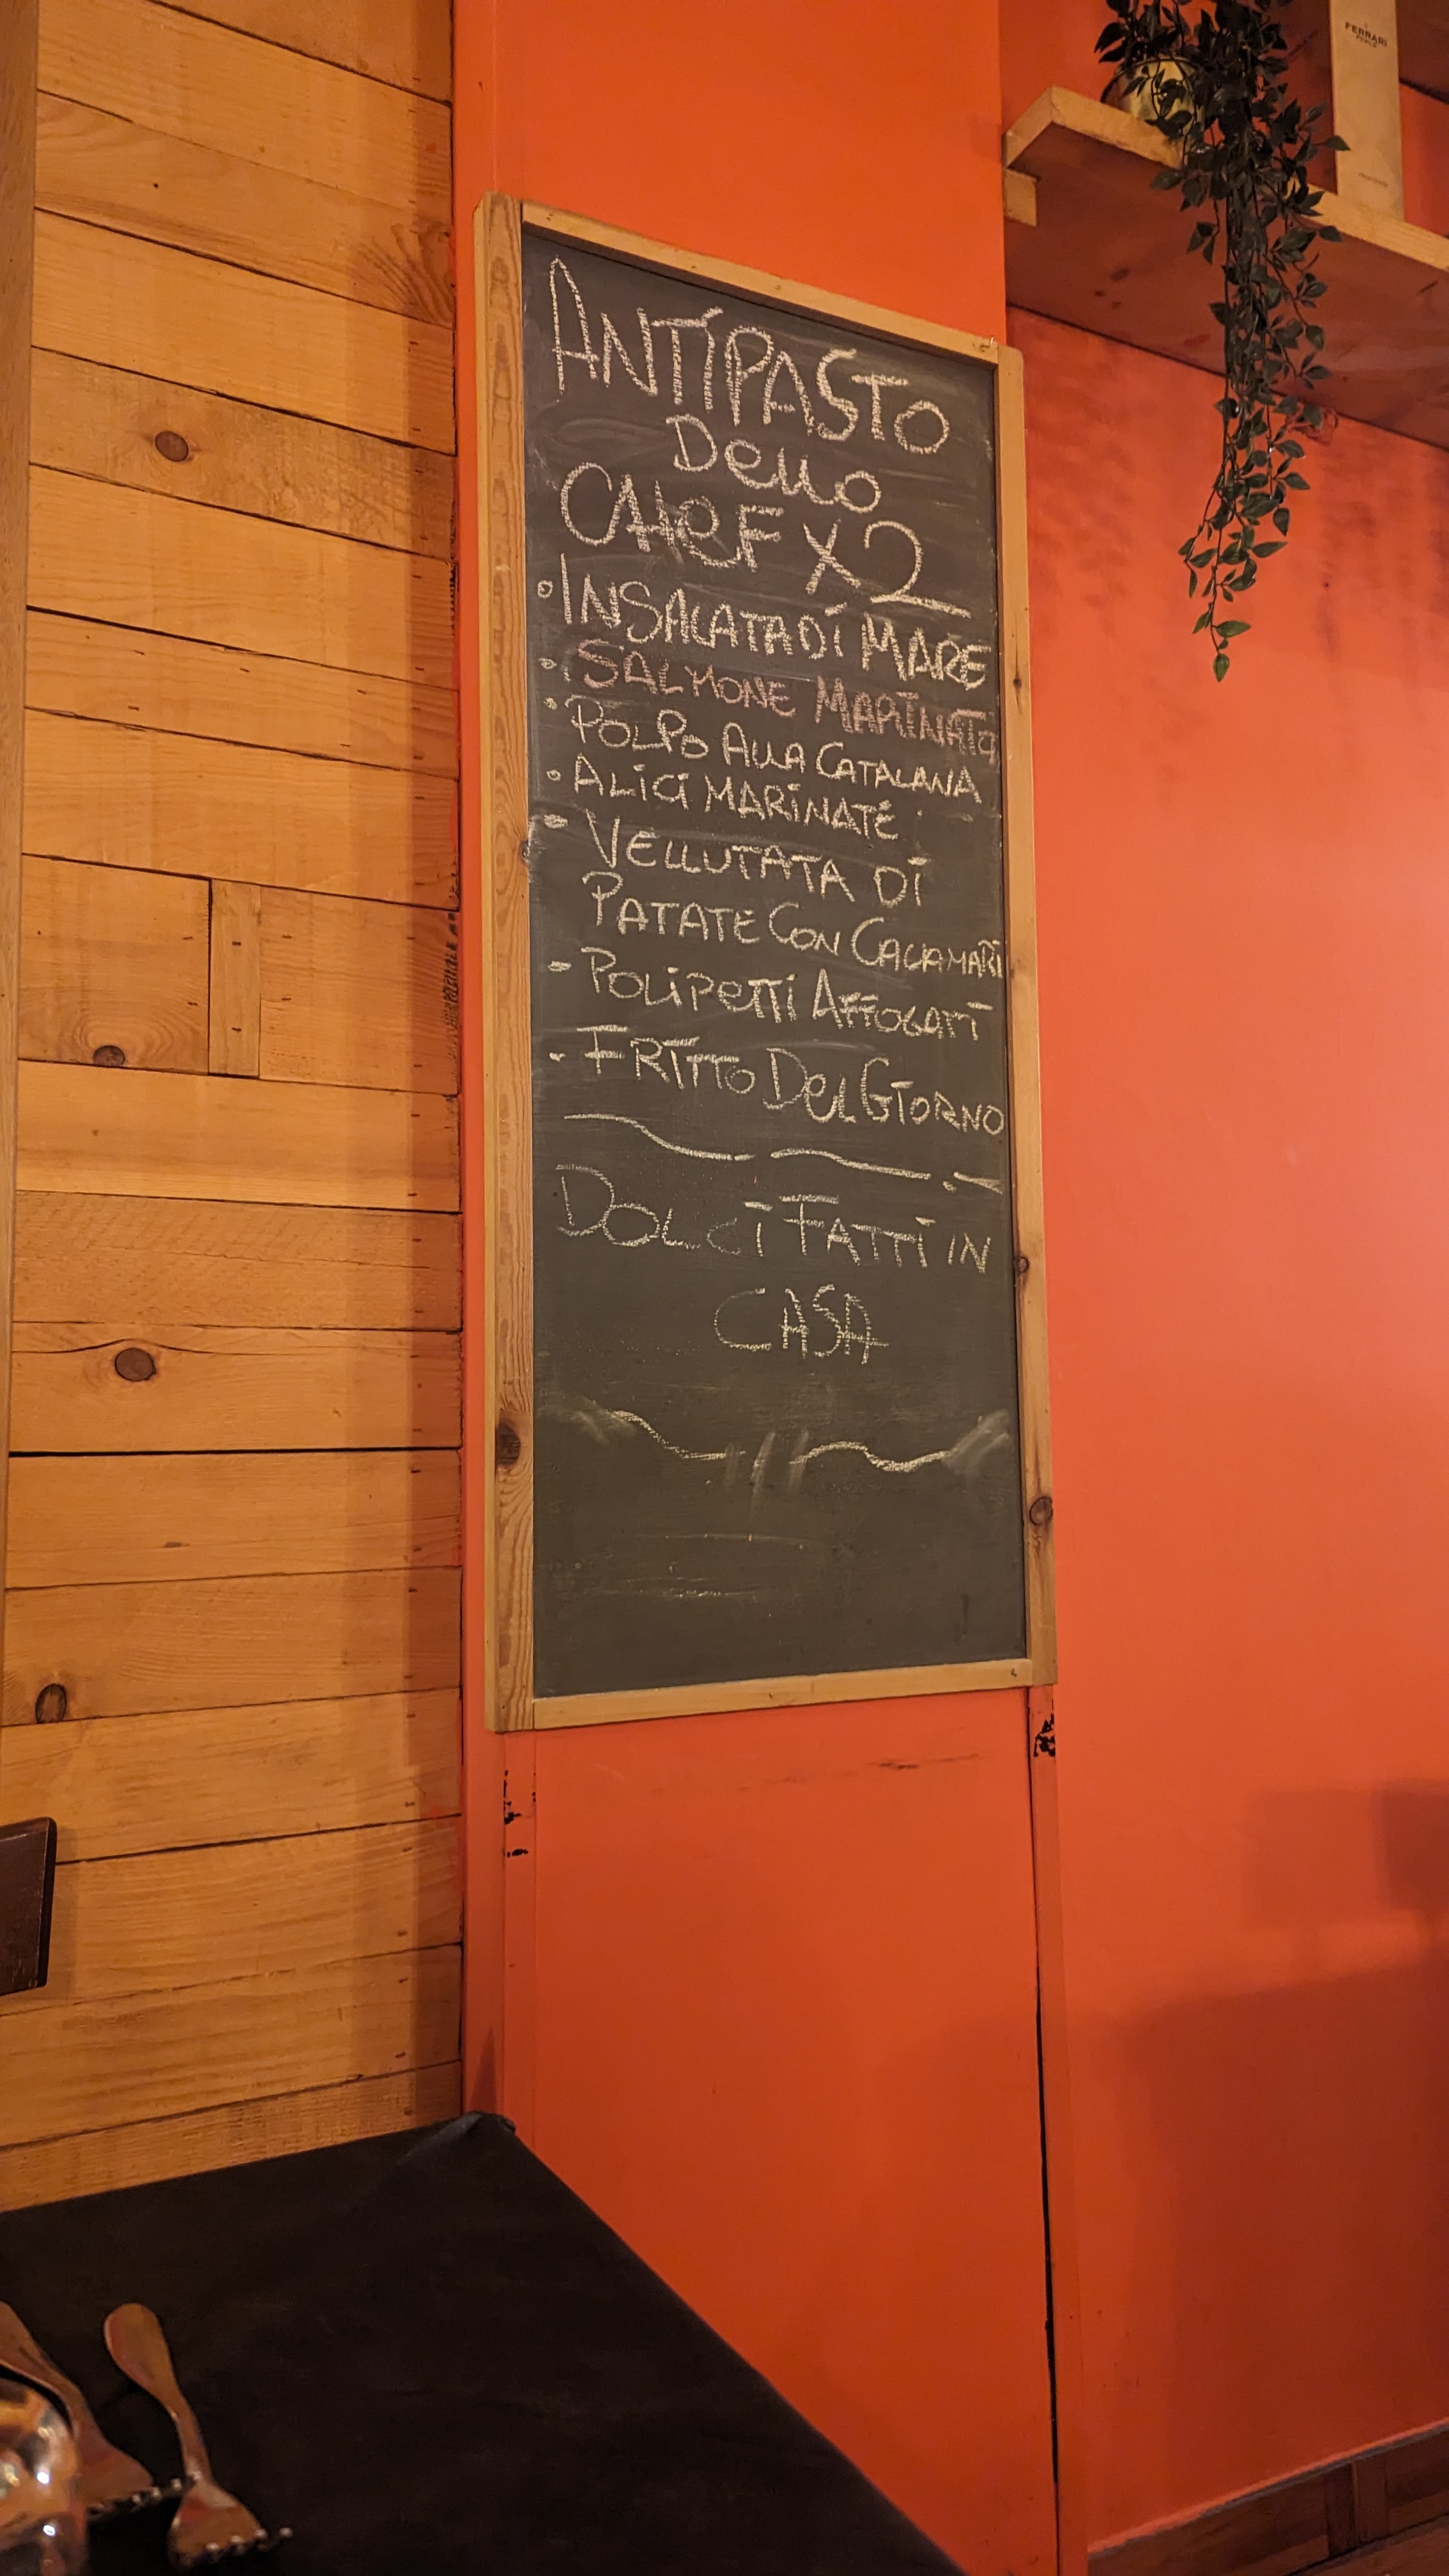 ANTIPASTO
DELLO
CHEF X2
• INSALATA DI MARE
• SALMONE MARINATO
• POLPO ALLA CATALANA
• ALICI MARINATE
- VELLUTATA DI
PATATE CON CALAMARI
- POLIPETTI AFFOGATI
- FRITTO DEL GIORNO
DOLCI FATTI IN
CASA
FERRARI